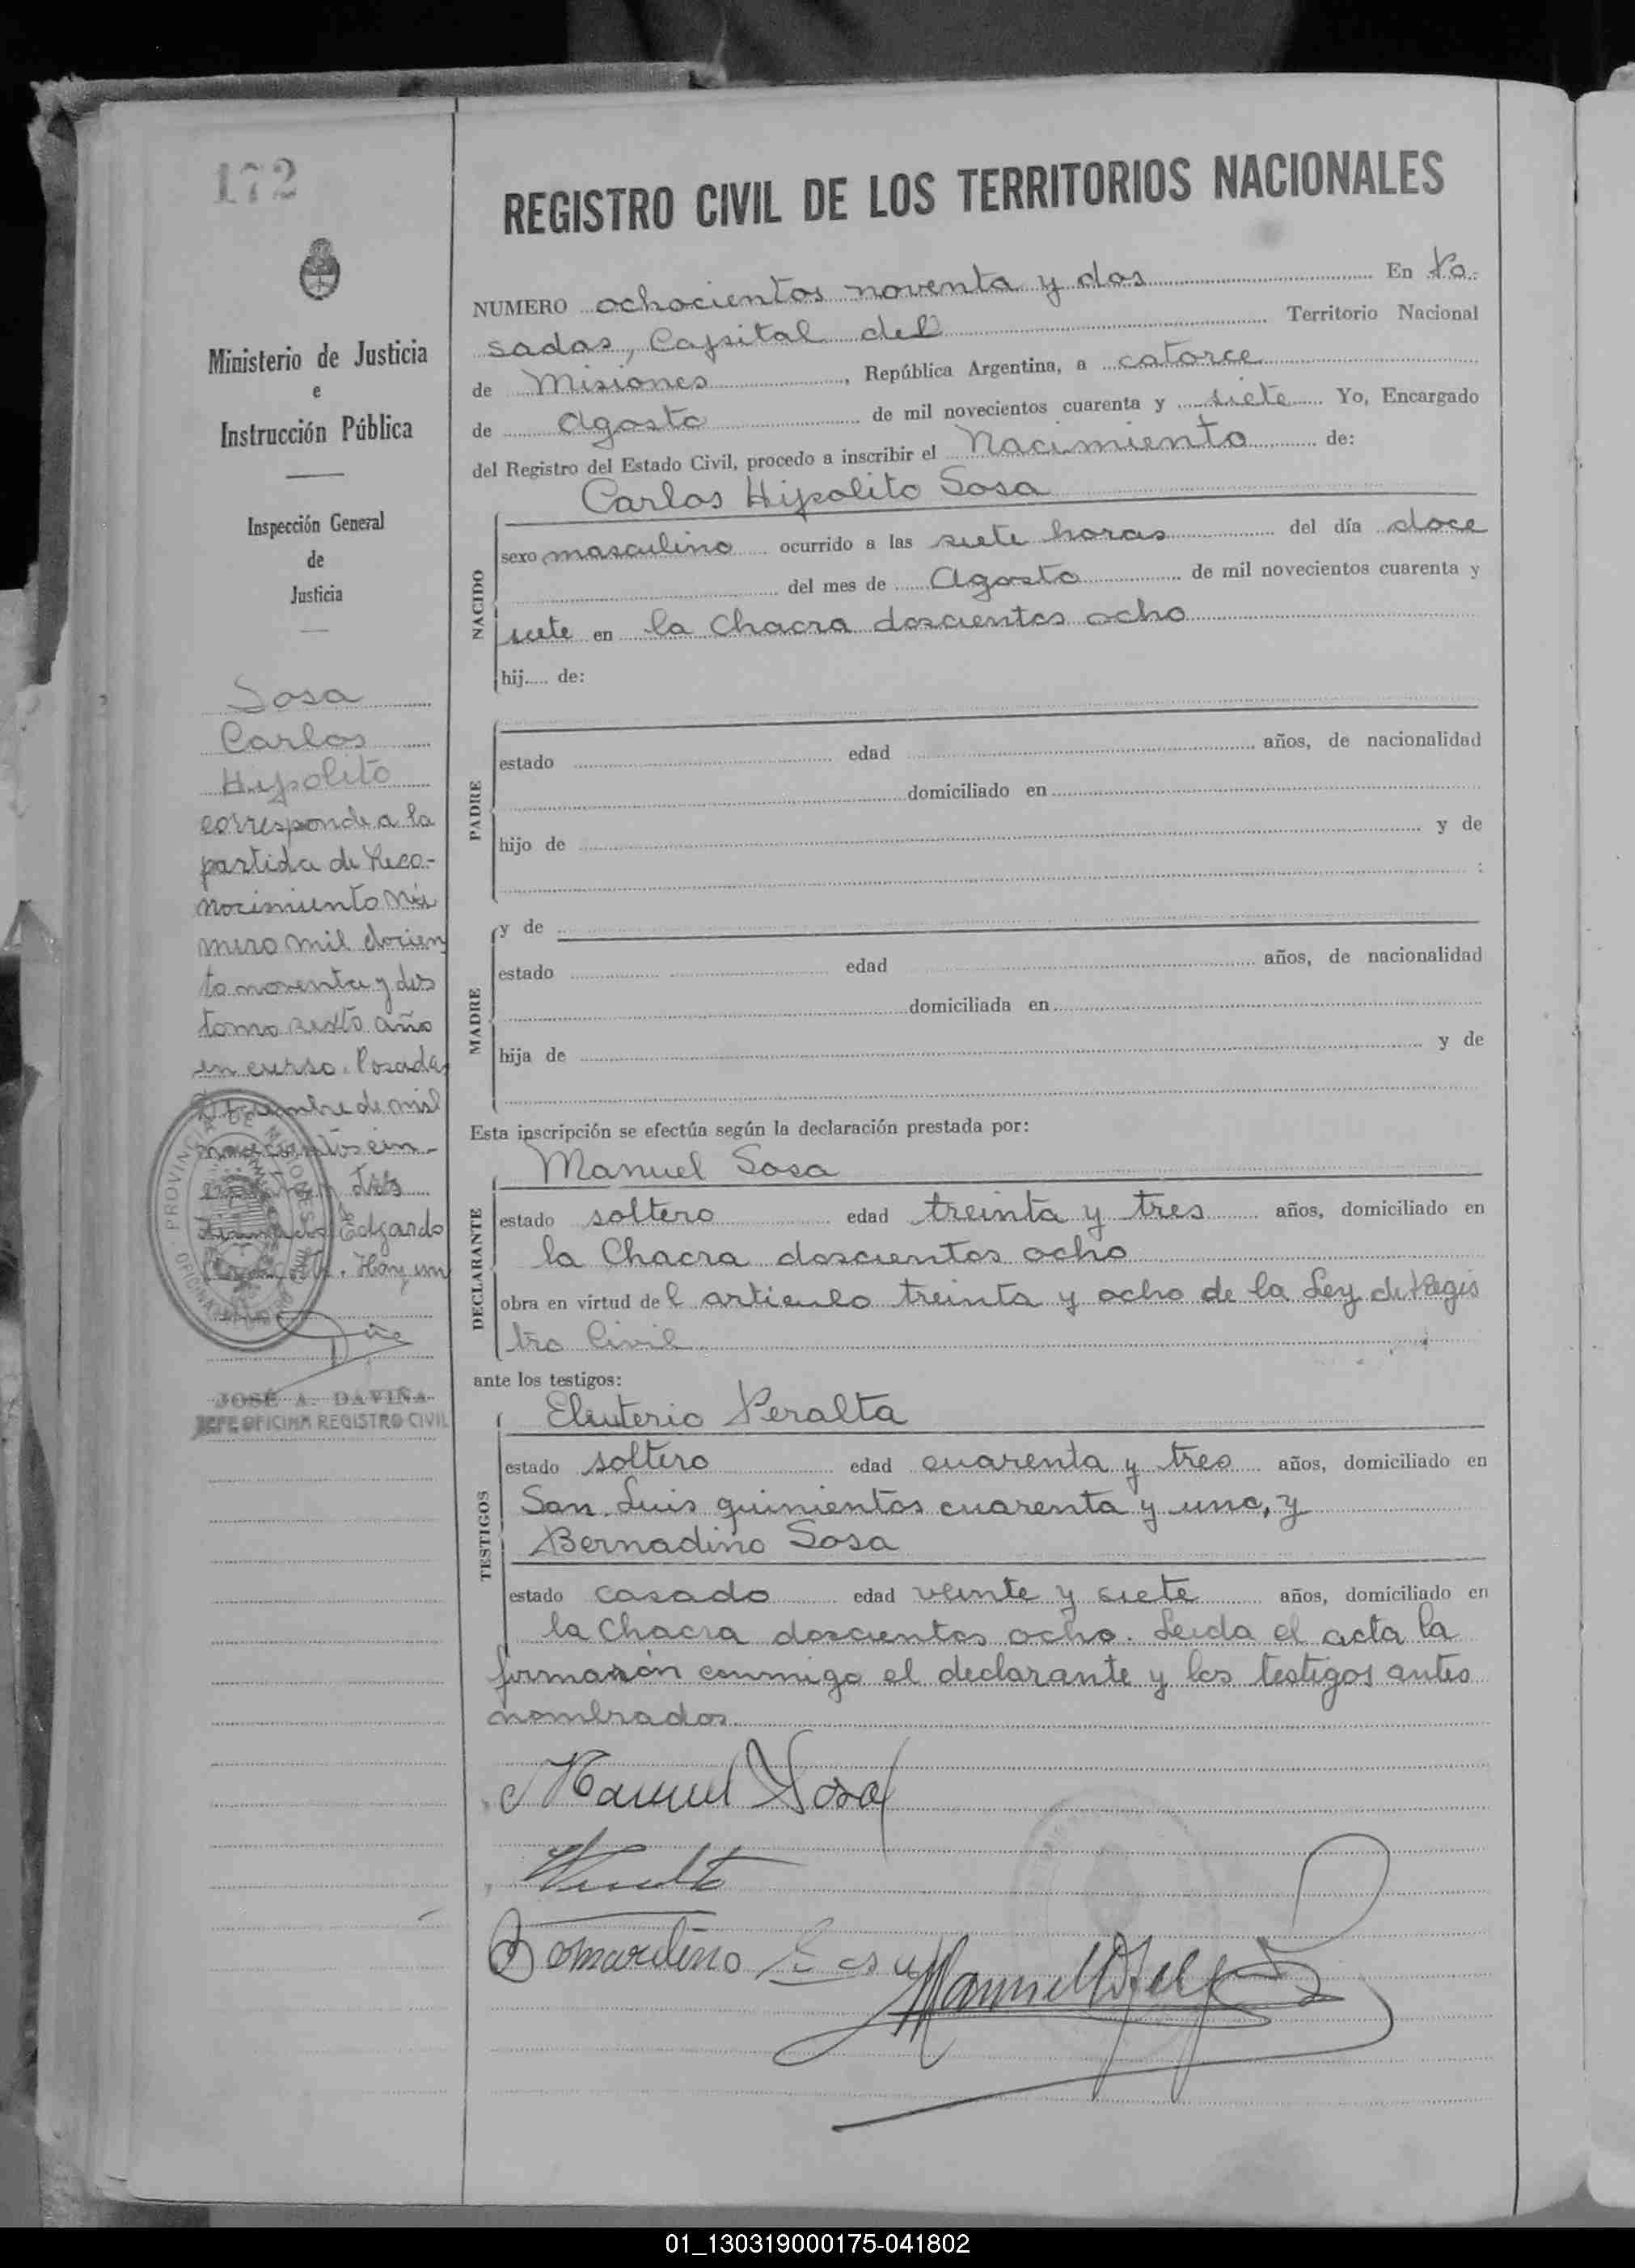 172
Ministerio de Justicia
e
Instrucción Pública
Inspección General
de
Justicia
Sosa
Carlos
Hipolito
corresponde a la
partida de Reco-
nocimiento Nú
mero mil docien
to noventa y dos
tomo sexto año
en curso. Posadas
de mil
novecientos cin-
tres
Edgardo
Hay un
PROVINCIA DE MISIONES
JOSÉ A. DAVIÑA
JEFE OFICINA REGISTRO CIVIL
REGISTRO CIVIL DE LOS TERRITORIOS NACIONALES
NUMERO ochocientos noventa y dos En Po-
sadas, Capital del Territorio Nacional
de Misiones, República Argentina, a catorce
de Agosto de mil novecientos cuarenta y siete Yo, Encargado
del Registro del Estado Civil, procedo a inscribir el Nacimiento de:
Carlos Hipolito Sosa
NACIDO
sexo masculino ocurrido a las siete horas del día doce
del mes de Agosto de mil novecientos cuarenta y
siete en la Chacra doscientos ocho
hij..... de:
PADRE
estado edad años, de nacionalidad
domiciliado en
hijo de y de
:
MADRE
y de
estado edad años, de nacionalidad
domiciliada en
hija de y de
Esta inscripción se efectúa según la declaración prestada por:
Manuel Sosa
DECLARANTE
estado soltero edad treinta y tres años, domiciliado en
la Chacra doscientos ocho
obra en virtud del articulo treinta y ocho de la Ley de Regis
tro Civil
ante los testigos:
Eleuterio Peralta
TESTIGOS
estado soltero edad cuarenta y tres años, domiciliado en
San Luis quinientos cuarenta y uno, y
Bernadino Sosa
estado casado edad veinte y siete años, domiciliado en
la Chacra doscientos ocho. Leida el acta la
firmarón conmigo el declarante y los testigos antes
nombrados
Manuel Sosa
01_130319000175-041802